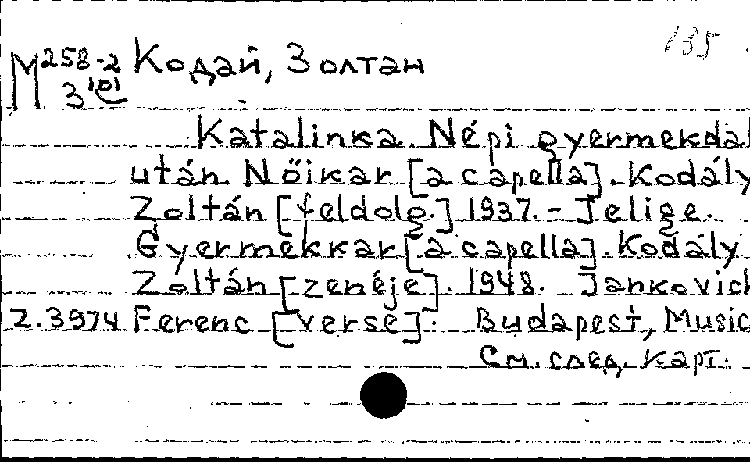 135
М258-2 Кодай, Золтан
З101
Katalinka. Népi gyermekdal
után. Nőikar [a capella]. Kodály
Zoltán [feldolg.] 1937. - Jelige.
Gyermekkar [a capella]. Kodály
Zoltán [zenéje]. 1948. Jankovich
2.3974 Ferenc [verse]. Budapest, Music
См. след. карт.